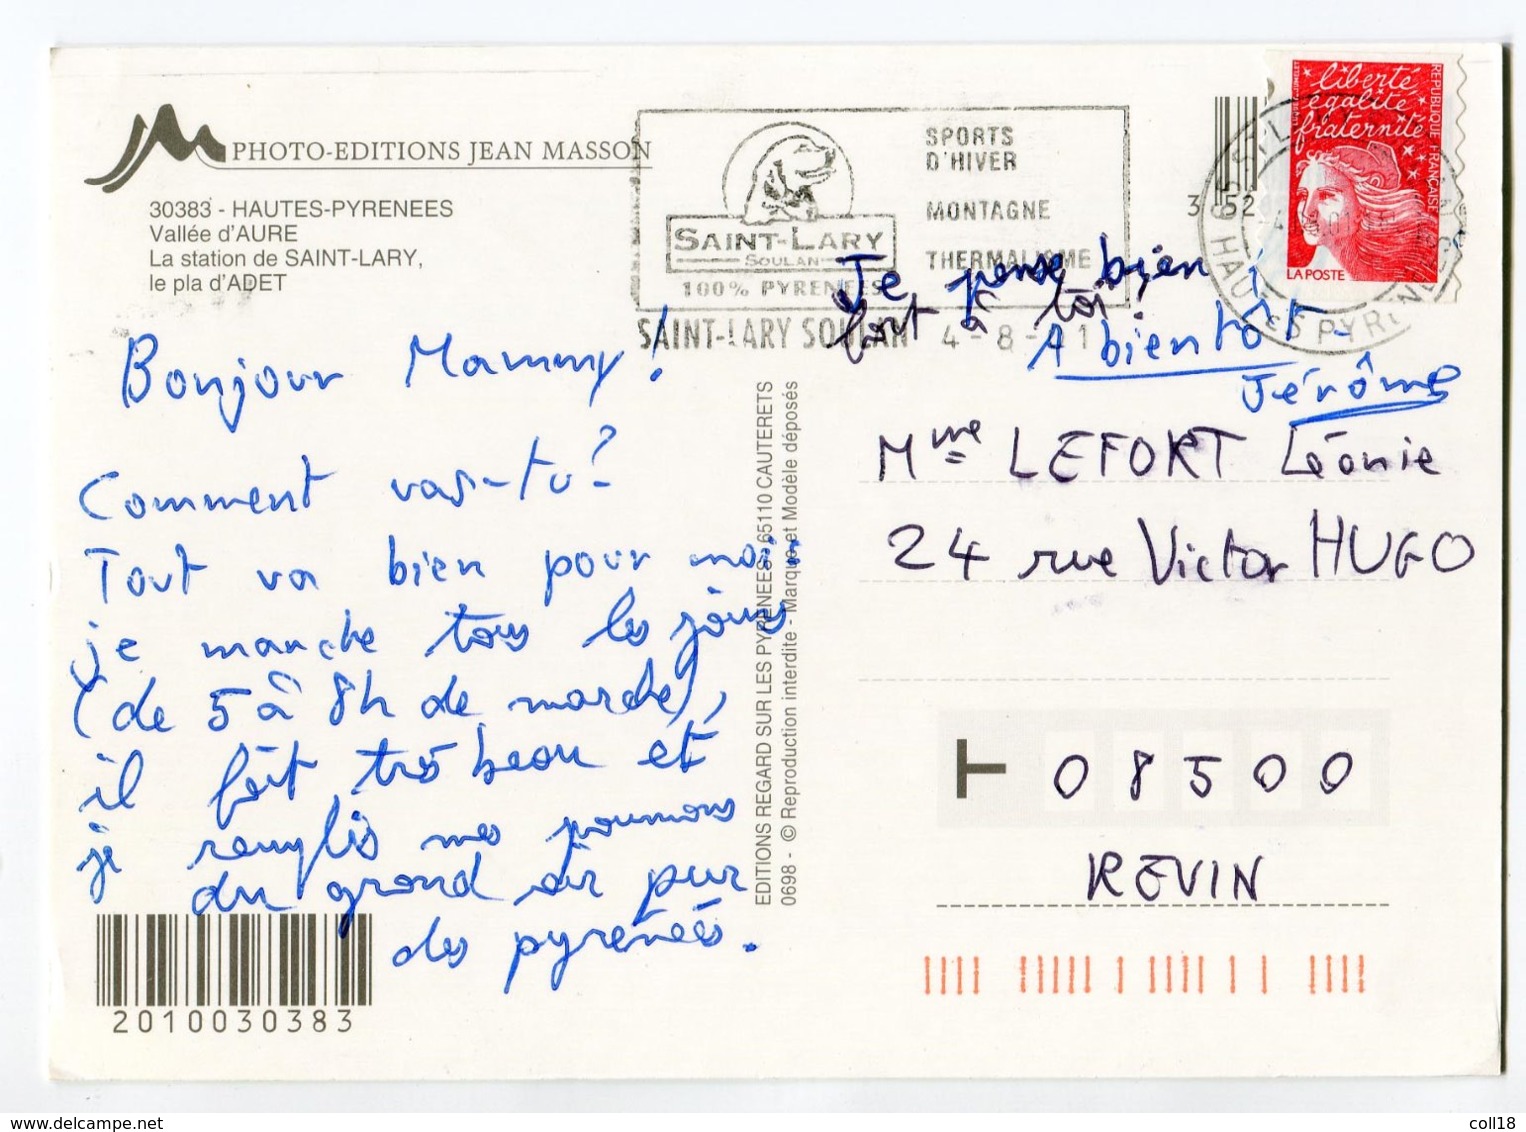 PHOTO-EDITIONS JEAN MASSON
30383 - HAUTES-PYRENEES
Vallée d'AURE
La station de SAINT-LARY,
le pla d'ADET
SAINT-LARY
SOULAN
100% PYRENEES
SPORTS
D'HIVER
MONTAGNE
THERMALISME
SAINT-LARY SOULAN 4-8-
3 52
liberté
égalité
fraternité
REPUBLIQUE FRANÇAISE
LA POSTE
HAUTES PYRENEES
Bonjour Mammy !
Comment vas-tu ?
Tout va bien pour moi,
je marche tous les jours
(de 5 à 8h de marche),
il fait très beau et
je remplis mes poumons
du grand air pur
des pyrénées.
Je pense bien
fort à toi !
A bientôt -
Jérôme
EDITIONS REGARD SUR LES PYRENEES - 65110 CAUTERETS
0698 - © Reproduction interdite - Marque et Modèle déposés
Mme LEFORT Léonie
24 rue Victor HUGO
08500
REVIN
2010030383
coll18